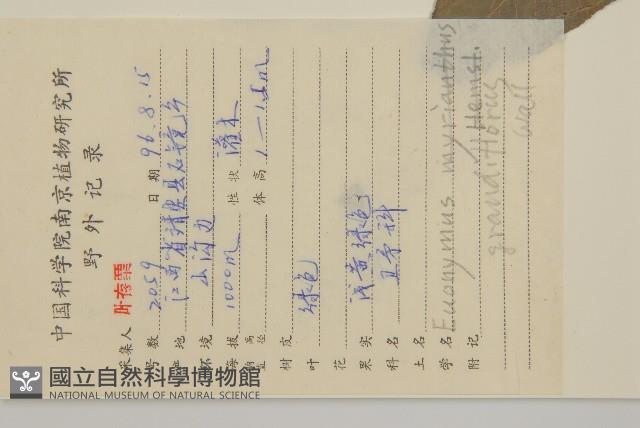 中国科学院南京植物研究所
野外记录
采集人 叶存粟
号数 2059 日期 96.8.15
产地 江西省靖安县石境乡
环境 山沟边
海拔 1000m 性状 灌木
胸高直径 体高 1—1.5m
树皮
叶 绿色
花
果实 浅黄绿色
科名 卫矛科
土名
学名 Euonymus myrianthus Hemsl.
附记 grandiflorus Wall
國立自然科學博物館
NATIONAL MUSEUM OF NATURAL SCIENCE